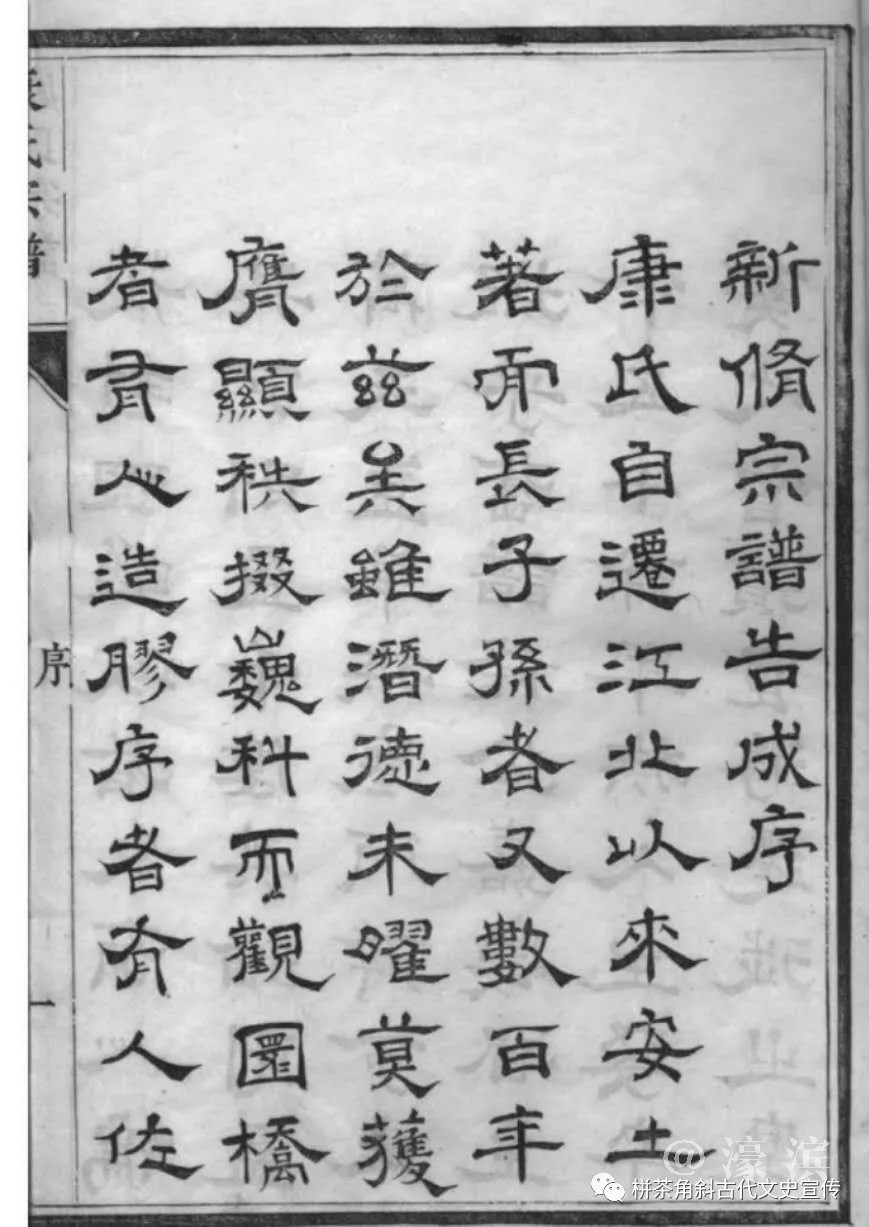 新脩宗譜告成序
康氏自遷江北以來安土
著而長子孫者又數百年
於兹矣雖潛德未曜莫獲
膺顯秩掇巍科而觀圜橋
者有人造膠序者有人佐
氏宗譜
序
一
@濠滨
栟茶角斜古代文史宣传